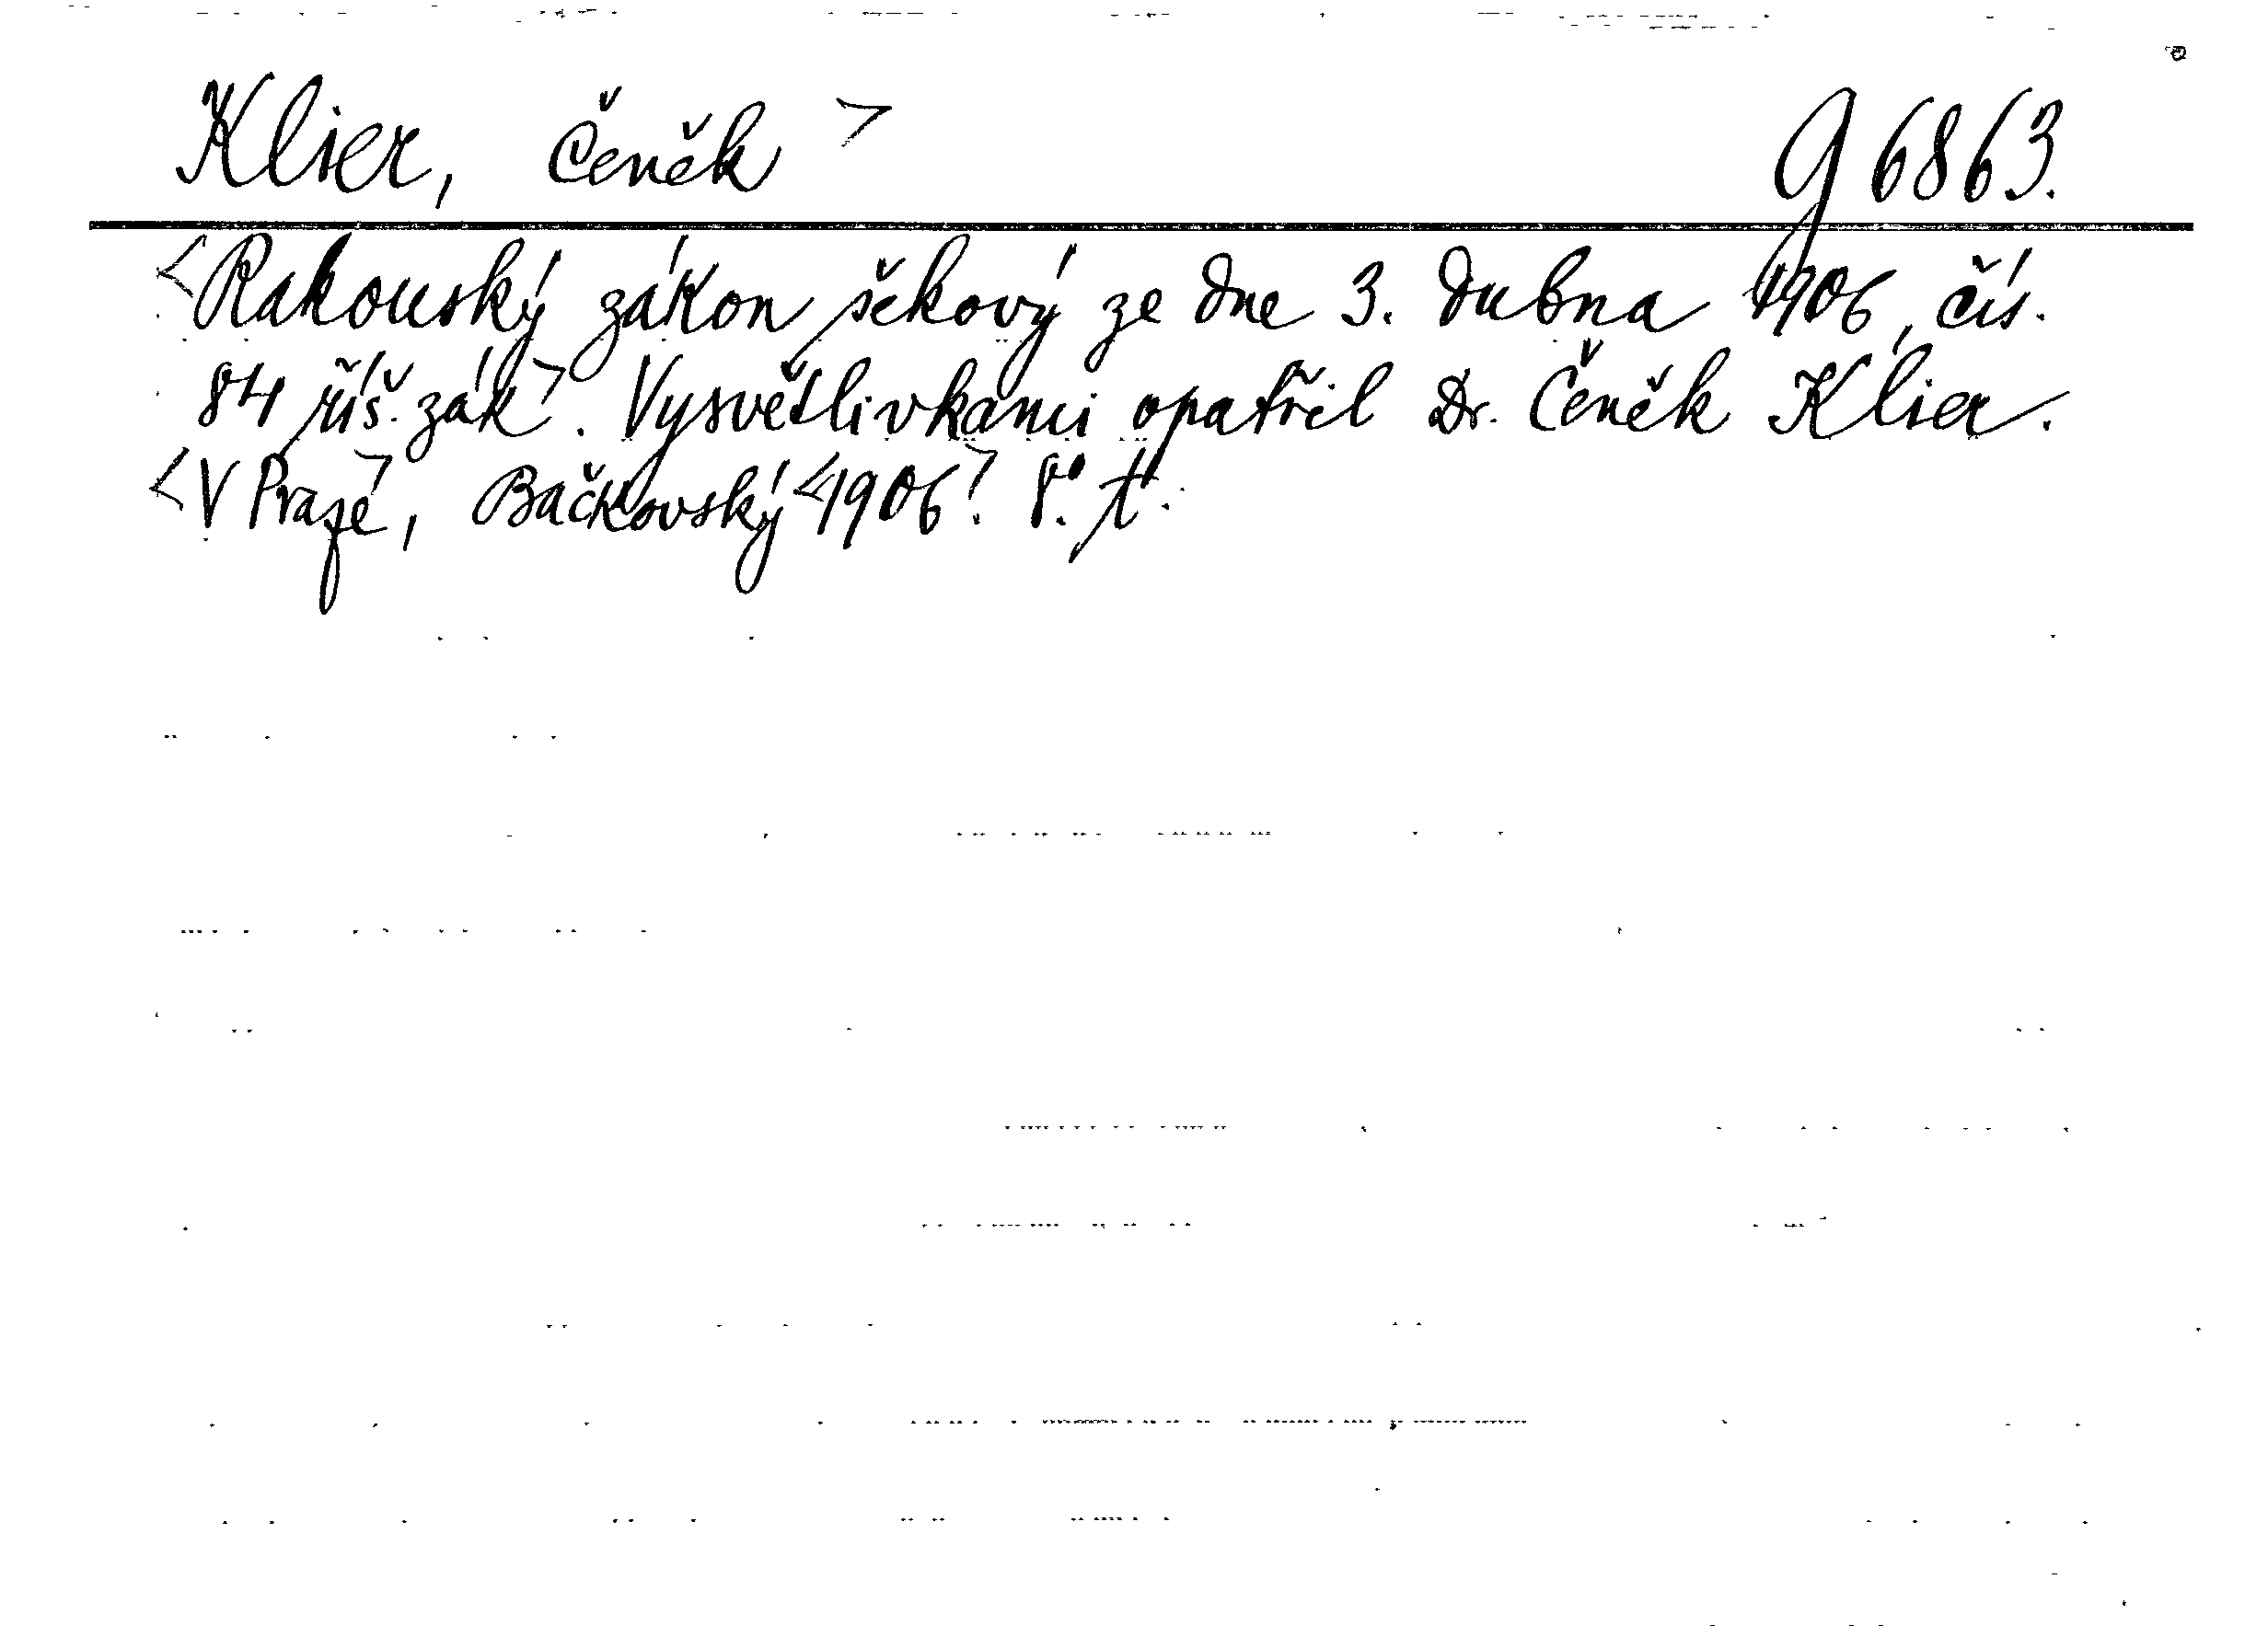 Klier, Čeněk > g 6863.
<Rakouský zákon šekový ze dne 3. dubna 1906, čís.
84 říš. zák>. Vysvětlivkami opatřil Dr. Čeněk Klier.
<V Praze>, Bačkovský <1906>. 8°.